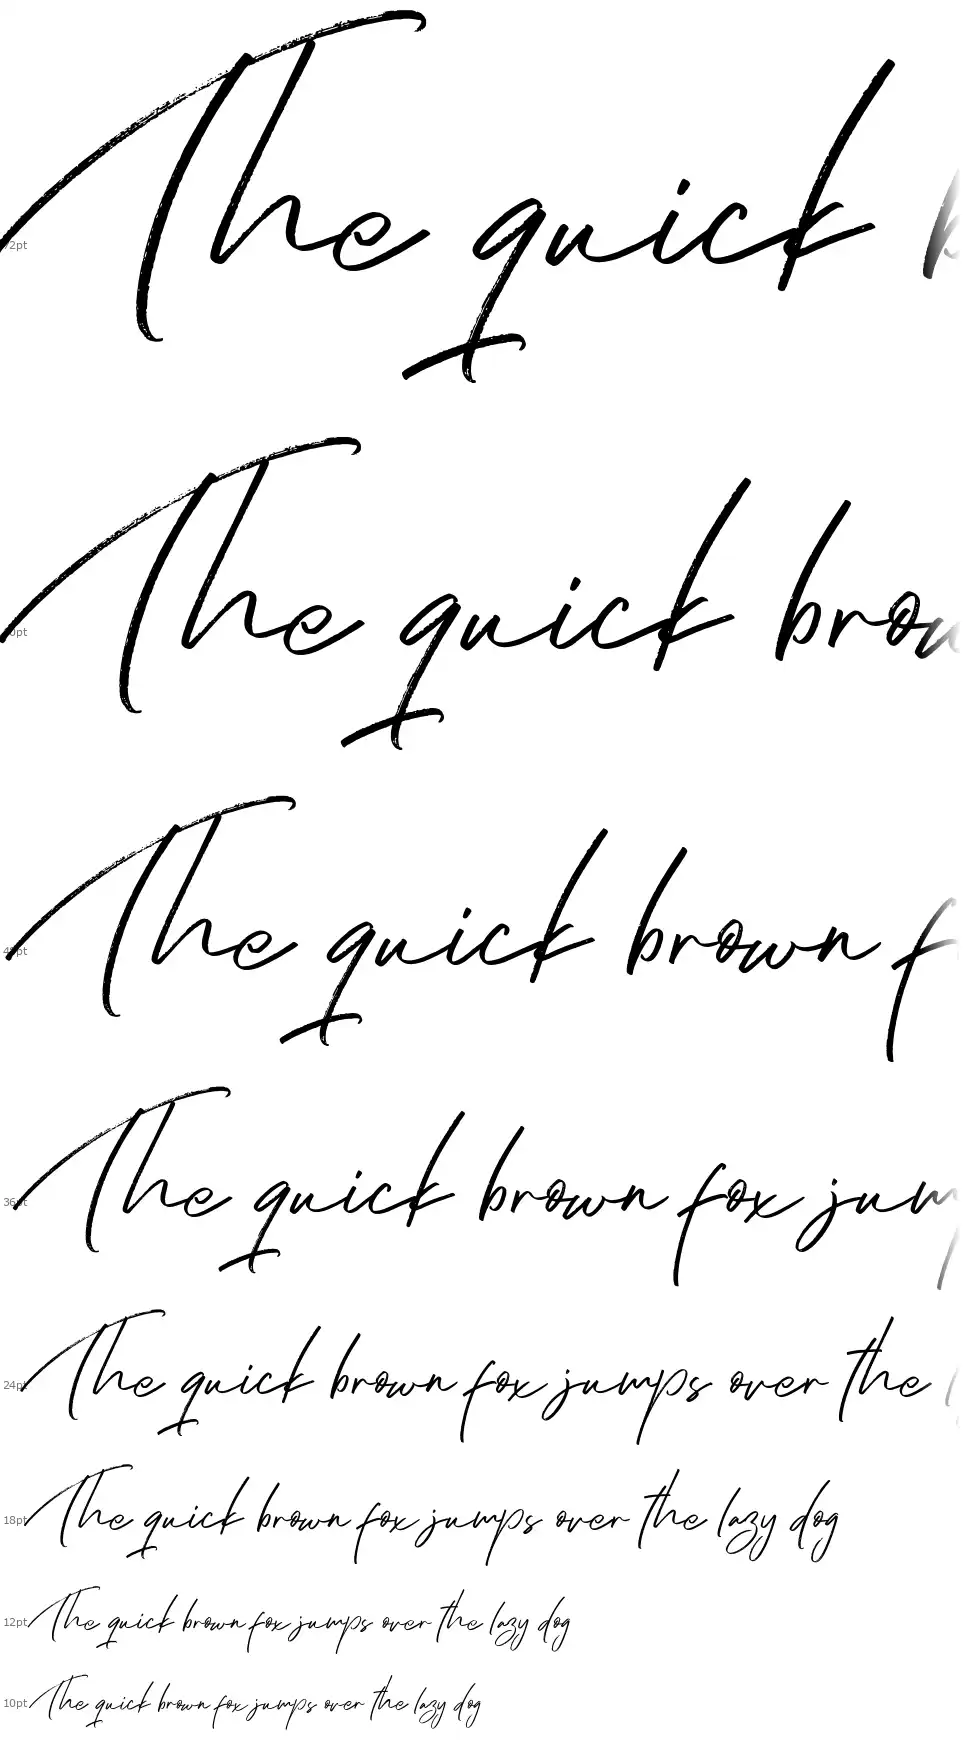 72pt The quick
60pt The quick brow
48pt The quick brown f
36pt The quick brown fox jum
24pt The quick brown fox jumps over the
18pt The quick brown fox jumps over the lazy dog
12pt The quick brown fox jumps over the lazy dog
10pt The quick brown fox jumps over the lazy dog